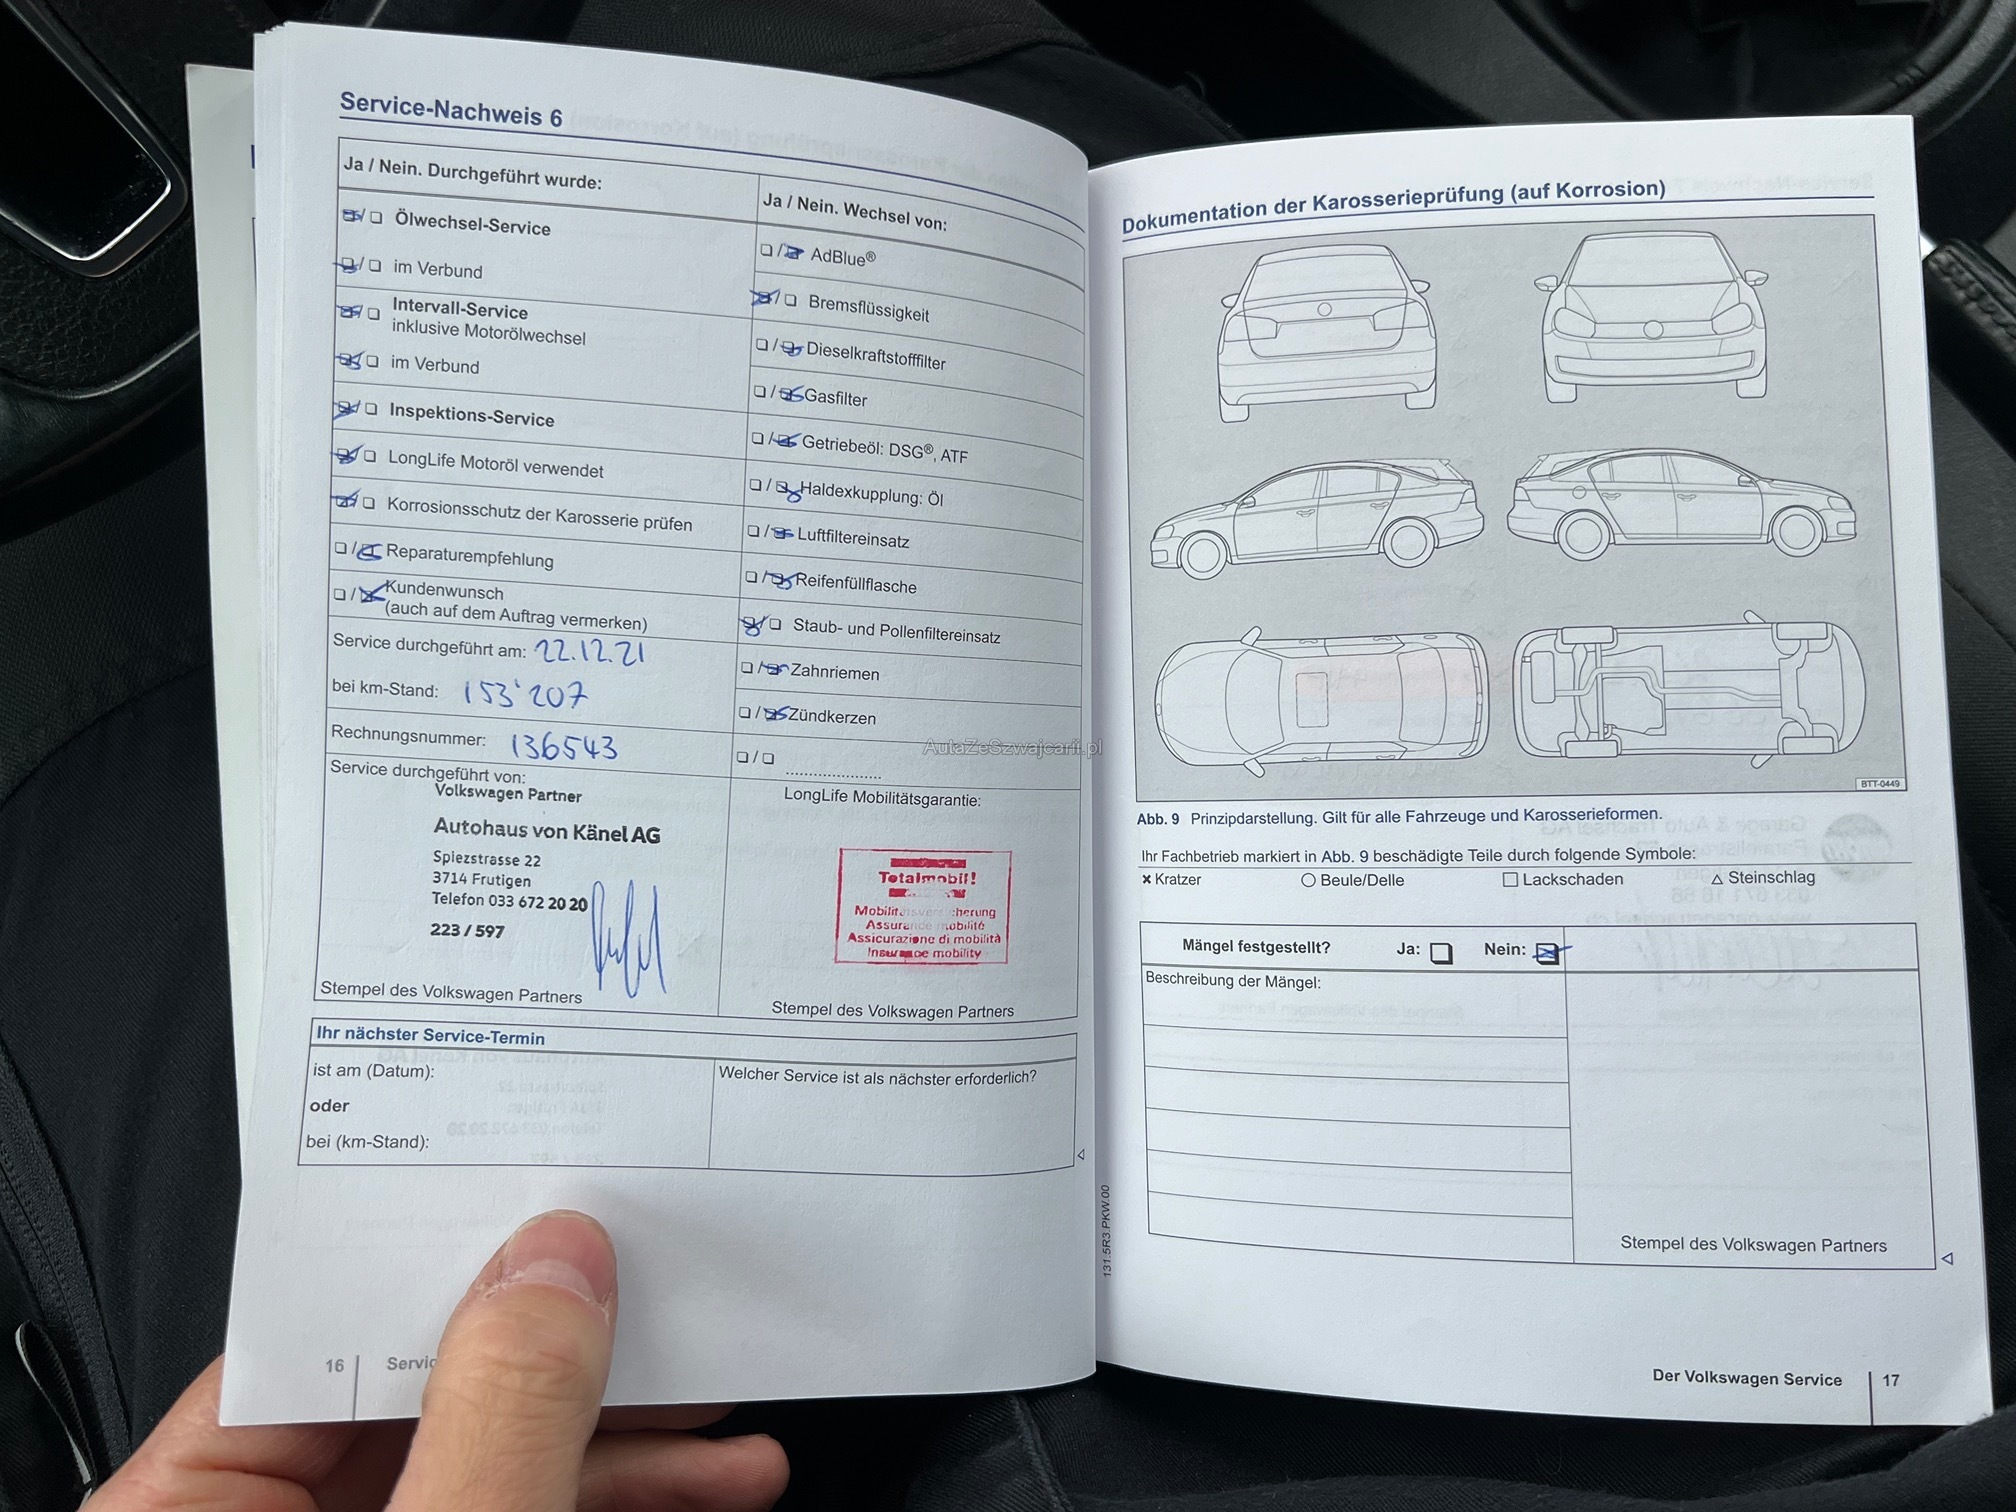 Service-Nachweis 6
Ja / Nein. Durchgeführt wurde:
Ölwechsel-Service
im Verbund
Intervall-Service
inklusive Motorölwechsel
im Verbund
Inspektions-Service
LongLife Motoröl verwendet
Korrosionsschutz der Karosserie prüfen
Reparaturempfehlung
Kundenwunsch
(auch auf dem Auftrag vermerken)
Service durchgeführt am: 22.12.21
bei km-Stand: 153'207
Rechnungsnummer: 136543
Service durchgeführt von:
Volkswagen Partner
Autohaus von Känel AG
Spiezstrasse 22
3714 Frutigen
Telefon 033 672 20 20
223 / 597
Stempel des Volkswagen Partners
Ja / Nein. Wechsel von:
AdBlue®
Bremsflüssigkeit
Dieselkraftstofffilter
Gasfilter
Getriebeöl: DSG®, ATF
Haldexkupplung: Öl
Luftfiltereinsatz
Reifenfüllflasche
Staub- und Pollenfiltereinsatz
Zahnriemen
Zündkerzen
LongLife Mobilitätsgarantie:
Totalmobil!
Mobilitätsversicherung
Assurance mobilité
Assicurazione di mobilità
Insurance mobility
Stempel des Volkswagen Partners
Ihr nächster Service-Termin
ist am (Datum):
oder
bei (km-Stand):
Welcher Service ist als nächster erforderlich?
16
Dokumentation der Karosserieprüfung (auf Korrosion)
BTT-0449
Abb. 9 Prinzipdarstellung. Gilt für alle Fahrzeuge und Karosserieformen.
Ihr Fachbetrieb markiert in Abb. 9 beschädigte Teile durch folgende Symbole:
× Kratzer ○ Beule/Delle □ Lackschaden △ Steinschlag
Mängel festgestellt? Ja: Nein:
Beschreibung der Mängel:
Stempel des Volkswagen Partners
131.5R3.PKW.00
Der Volkswagen Service 17
AutaZeSzwajcarii.pl